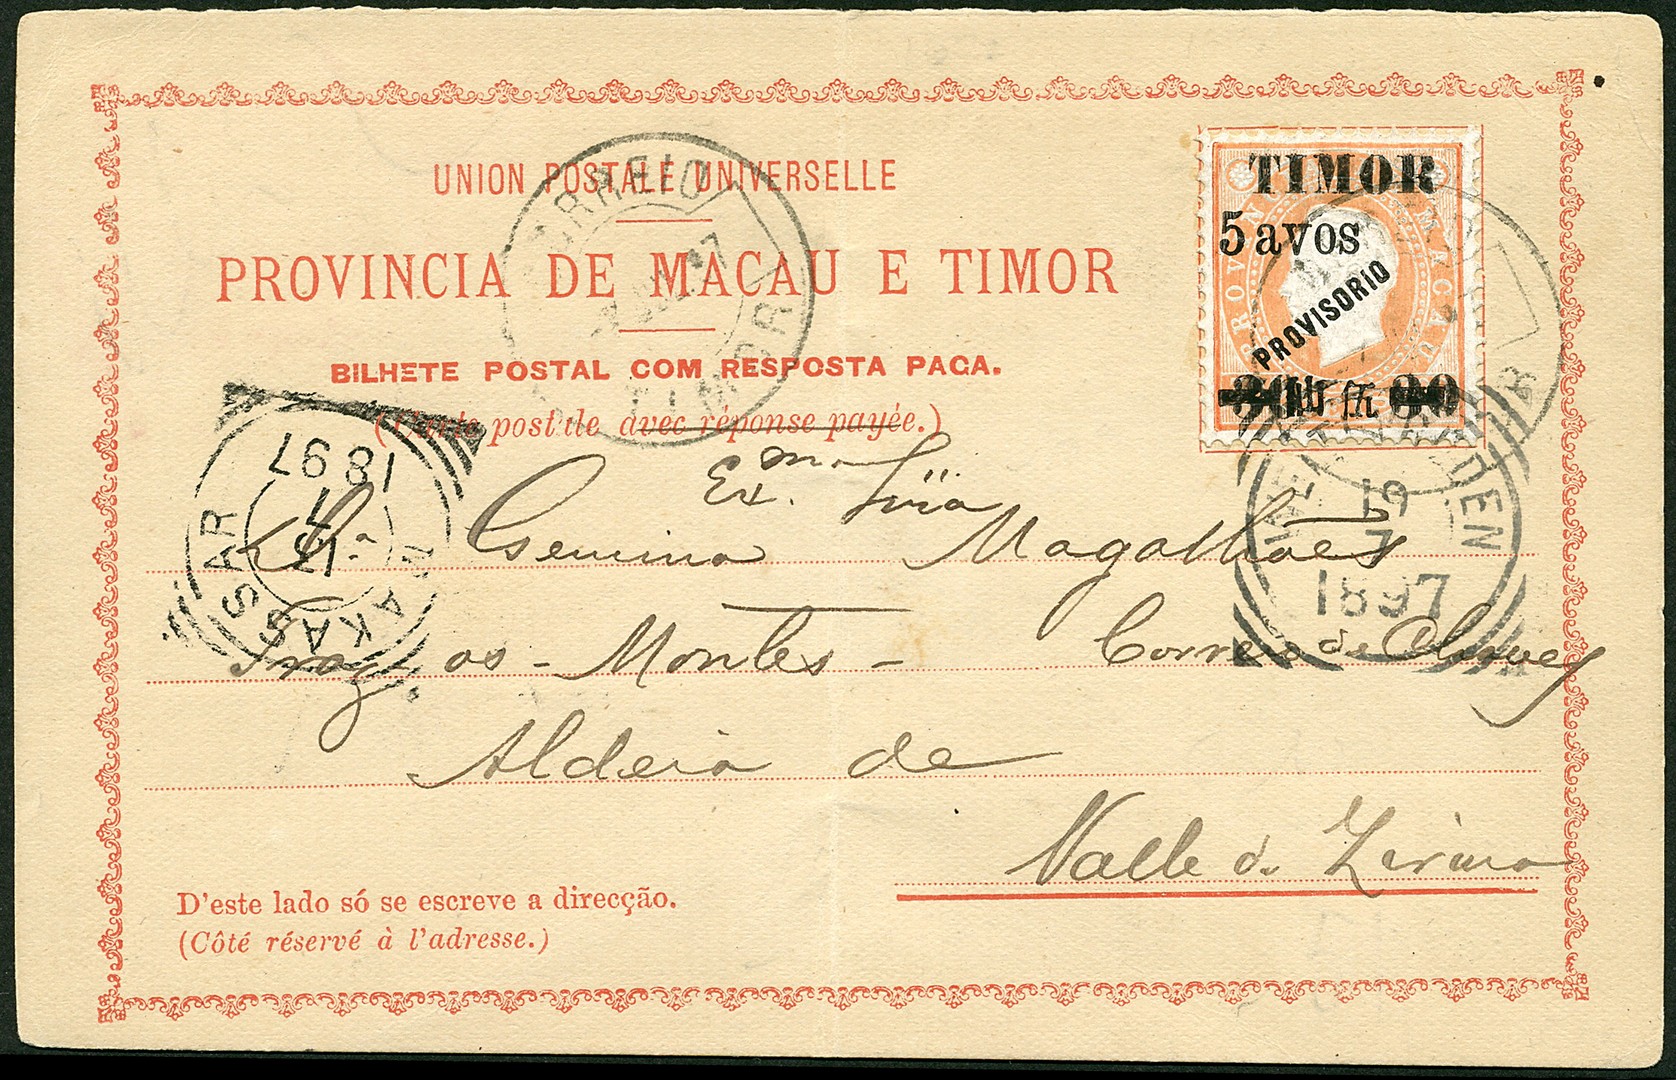 UNION POSTALE UNIVERSELLE
PROVINCIA DE MACAU E TIMOR
BILHETE POSTAL COM RESPOSTA PAGA.
(Carte postale avec réponse payée.)
TIMOR
5 avos
PROVISORIO
PROVINCIA MACAU
伍
CORREIO
97
TIMOR
MAKASSAR
17
7
1897
WELTEVREDEN
19
7
1897
Exma. Snra
D. Gemina Magalhães
Traz-os-Montes - Correio de Chaves
Aldeia de
Valle de
D'este lado só se escreve a direcção.
(Côté réservé à l'adresse.)